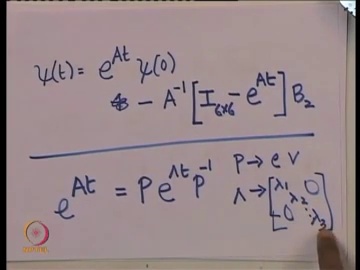 ψ(t) = e^{At} ψ(0)
- A^{-1} [I_{6×6} - e^{At}] B_2
e^{At} = P e^{Λt} P^{-1}
P → e v
λ → [λ_1 0
λ_2
0 ⋱ λ_3]
NPTEL